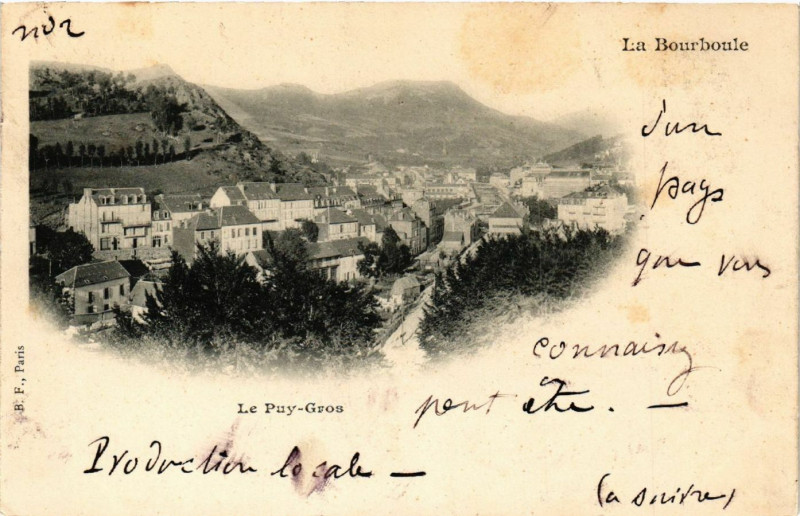 no 2
La Bourboule
d'un
pays
que vous
connaissez
peut être. —
B. F., Paris
Le Puy-Gros
Production locale —
(a suivre)